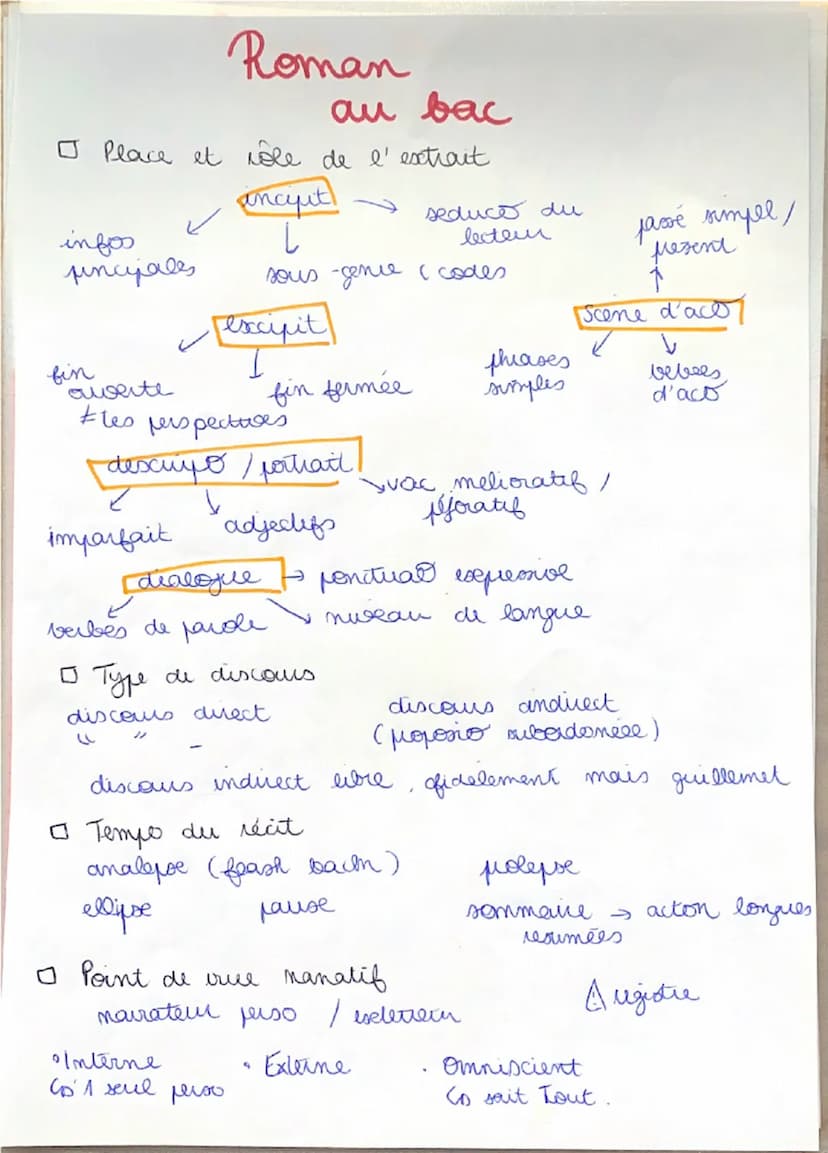 Roman
au bac
□ Place et rôle de l'extrait
incipit → seducto du
lecteur
infos
principales
sous-genre (codes
passé simpel /
present
scène d'acto
phrases
simples
verbes
d'acto
excipit
fin
ouverte
≠ les perspectives
fin fermée
descripto / portrait
imparfait
adjectifs
voc melioratif /
péjoratif
dialogue → ponctuato expressive
verbes de parole
niveau de langue
□ Type de discours
discours direct
" " -
discours indirect
(proposio subordonnée)
discours indirect libre, fidèlement mais guillemet
□ Tempo du récit
analepse (flash back)
prolepse
ellipse pause
sommaire → acton longues
resumées
□ Point de vue narratif
narrateur perso / exterieur
⚠ registre
• Interne
↳ 1 seul perso
• Externe
• Omniscient
↳ sait tout.